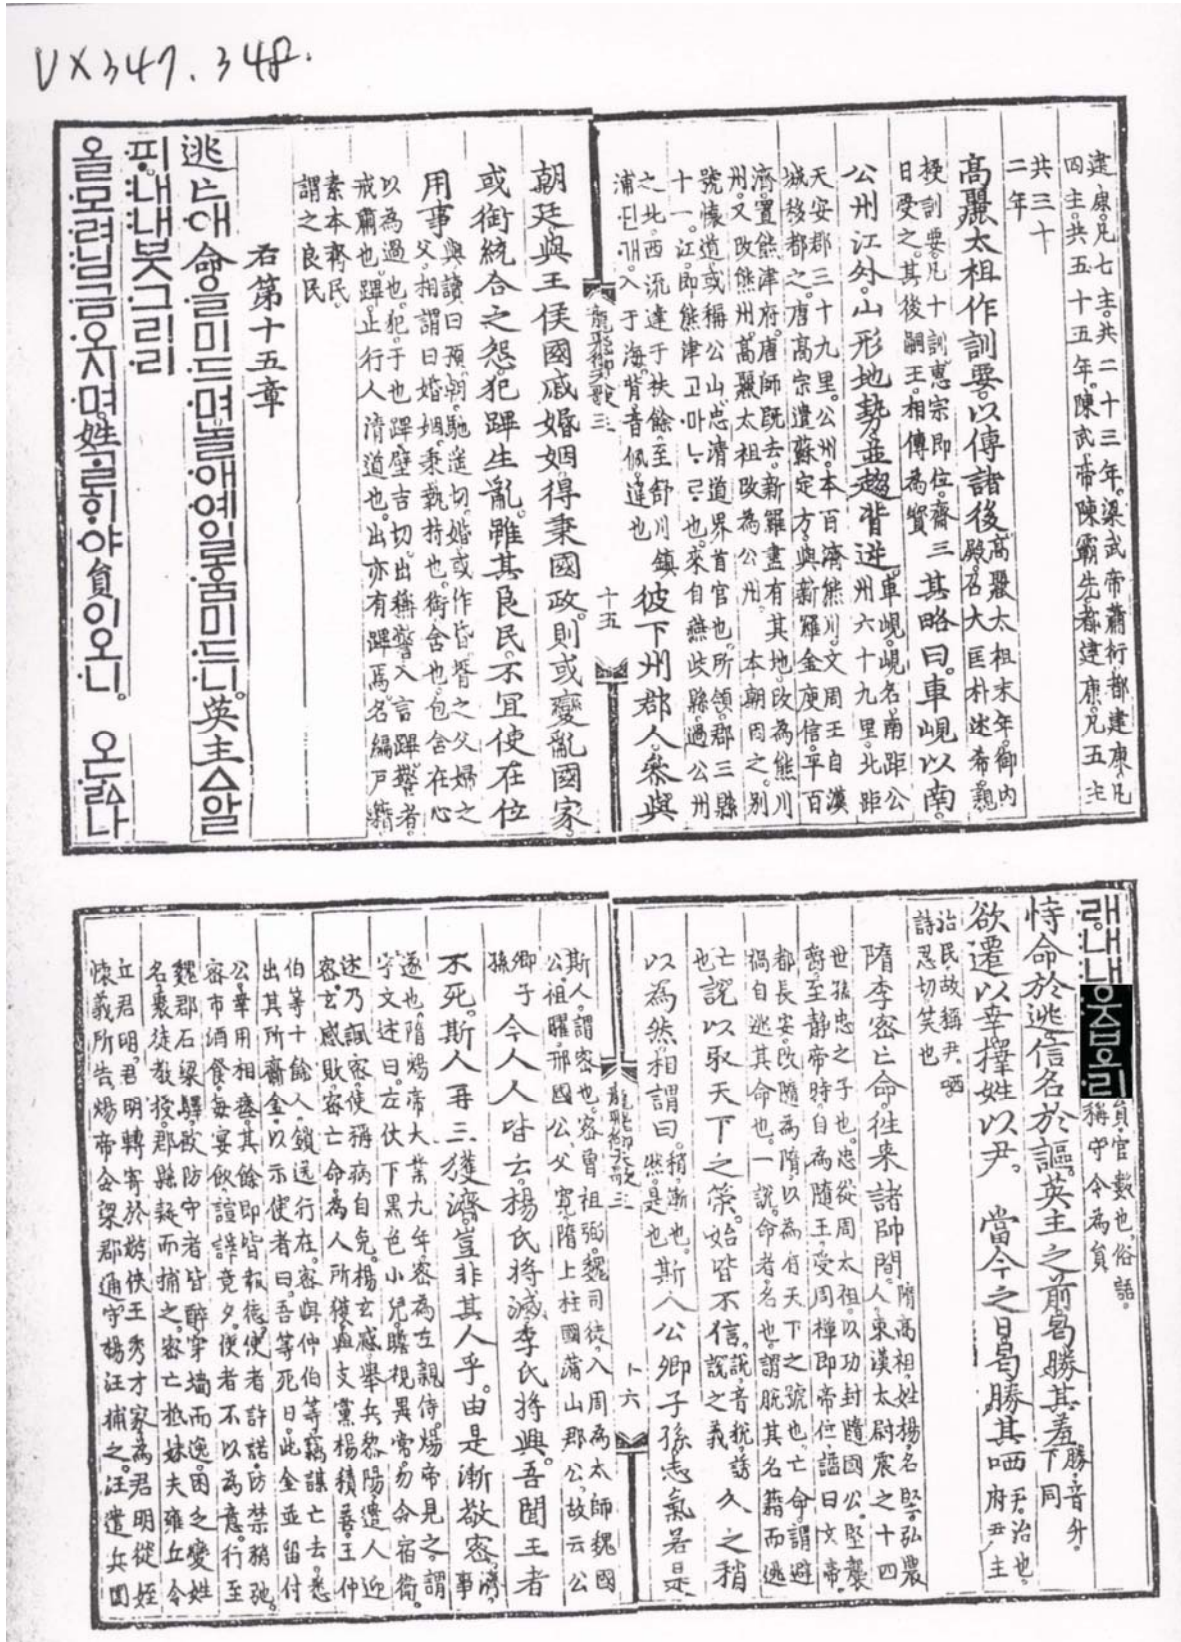 建康。凡七主。共二十三年。梁武帝蕭衍。都建康。凡
四主。共五十五年。陳武帝陳霸先。都建康。凡五主
共三十
二年
高麗太祖作訓要。以傳諸後 高麗太祖末年。御內
殿。召大匡朴述希。親
授訓要。凡十訓。惠宗即位。齋
日受之。其後嗣王。相傳為寶 三其略曰。車峴以南
公州江外。山形地勢。並趨背逆。 車峴。峴名。南距公
州六十九里。北距
天安郡三十九里。公州。本百濟熊川。文周王自漢
城移都之。唐高宗遣蘇定方。與新羅金庾信。平百
濟。置熊津府。唐師既去。新羅盡有其地。改為熊川
州。又改熊州。高麗太祖改為公州。本朝因之。別
號懷道。或稱公山。忠清道界首官也。所領郡三縣
十一。江。即熊津고마ᄂᆞᄅᆞ也。來自燕岐縣。過公州
之北。西流達于扶餘。至舒川鎮
浦딘개。入于海。背音佩。違也 彼下州郡人。叅與
龍飛御天歌三
十五
朝廷。與王侯國戚婚姻。得秉國政。則或變亂國家。
或銜統合之怨。犯蹕生亂。雖其良民。不宜使在位
用事 與讀曰預。朝。馳遙切。婚或作昏。壻之父婦之
父。相謂曰婚姻。秉。執持也。銜。含也。包含在心
以為過也。犯。干也。蹕。壁吉切。出稱警。入言蹕。警者
戒肅也。蹕。止行人清道也。出亦有蹕焉。名編戶籍
素本齊民。
謂之良民
右第十五章
逃亡애 命을 미드며 놀애예 일훔 미드니 英主ㅿ 알
ᄑᆡ 내내 붓그리리
올모려 님금 오시며 姓 ᄀᆞᆯᄒᆡ야 員이 오니 오ᄂᆞᆳ나
래 내내 웃ᄫᅳ리 員。官數也。俗語。
稱守令為員
恃命於逃。信名於謳。英主之前。曷勝其羞 勝。音升。
下同
欲遷以幸。擇姓以尹。當今之日。曷勝其哂 尹。治也。
府尹。主
治民。故稱尹。哂。
詩忍切。笑也
隋李密亡命。往來諸帥間。 隋高祖。姓楊。名堅。弘農
人。東漢太尉震之十四
世孫忠之子也。忠從周太祖。以功封隨國公。堅襲
爵。至靜帝時。自為隨王。受周禪即帝位。諡曰文帝。
都長安。改隨為隋。以為有天下之號也。亡命。謂避
禍自逃其命也。一說。命者。名也。謂脫其名籍而逃
亡
也 說以取天下之策。始皆不信。 說音稅。誘
說之義 久之稍
以為然。相謂曰。 稍。漸也。
然。是也 斯人公卿子孫。志氣若是
龍飛御天歌三
十六
斯人。謂密也。密曾祖弼。魏司徒。入周為太師魏國
公。祖曜。邢國公。父寬。隋上柱國蒲山郡公。故云公
卿子
孫 今人人皆云。楊氏將滅。李氏將興。吾聞王者
不死。斯人再三獲濟。豈非其人乎。由是漸敬密。 濟。事
遂也。隋煬帝大業九年。密為左親侍。煬帝見之。謂
宇文述曰。左仗下黑色小兒。瞻視異常。勿令宿衛。
述乃諷密。使稱病自免。楊玄感舉兵黎陽。遣人迎
密。玄感敗。密亡命。為人所獲。與支黨楊積善王仲
伯等十餘人。鎖送行在。密與仲伯等。竊謀亡去。悉
出其所齎金。以示使者曰。吾等死日。此金並留付
公。幸用相瘞。其餘即皆報德。使者許諾。防禁稍弛。
密市酒食。每宴飲。諠譁竟夕。使者不以為意。行至
魏郡石梁驛。飲防守者皆醉。穿墻而逸。困乏。變姓
名。聚徒教授。郡縣疑而捕之。密亡抵妹夫雍丘令
丘君明。君明轉寄於遊俠王秀才家。為君明從姪
懷義所告。煬帝令梁郡通守楊汪捕之。汪遣兵圍